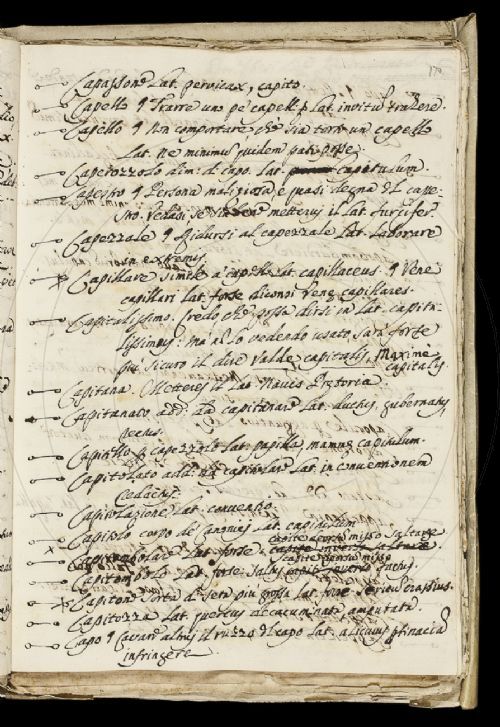 170
Capassone Lat. pervicax, capito.
Capello ¶ Trarre uno pe' capelli Lat. invitū trahere.
Capello ¶ Non comportare che sia torto un capello
Lat. ne minimū quidem pati posse.
Caperozzolo dim. di capo. Lat. capitulum.
Capestro ¶ Persona maliziosa e quasi degna del cape-
stro. Vedasi se metterci il Lat. furcifer.
Capezzale ¶ Ridursi al capezzale Lat. laborare
in extremis.
Capillare simile a' capelli Lat. capillaceus. ¶ Vene
capillari Lat. forse diconsi venę capillares.
Capitalissimo. Credo che possa dirsi in Lat. capita-
lissimus: ma nō lo vedendo usato, sarà forte
più sicuro il dire valde capitalis, Maxime
capitalis.
Capitana Metterei il Lat. Navis Prętoria.
Capitanato add. da capitanare Lat. ductus, gubernatus,
rectus.
Capitello p capezzolo Lat. papilla, mammę capitulum.
Capitolato add. da capitolare Lat. in conventionem
redactus.
Capitolazione Lat. conventio.
Capitolo corpo de' Canonici Lat. capitulum
capite deorsū misso saltare
Lat. forse
capite deorsū misso
Capitombolo Lat. forse saltus
Capitone Sorta di seta più grossa Lat. forse Sericū crassius.
Capitozza Lat. quercus decacuminata, amputata.
Capo ¶ Cavare altrui il ruzzo del capo Lat. alicuius ptinacia
infringere